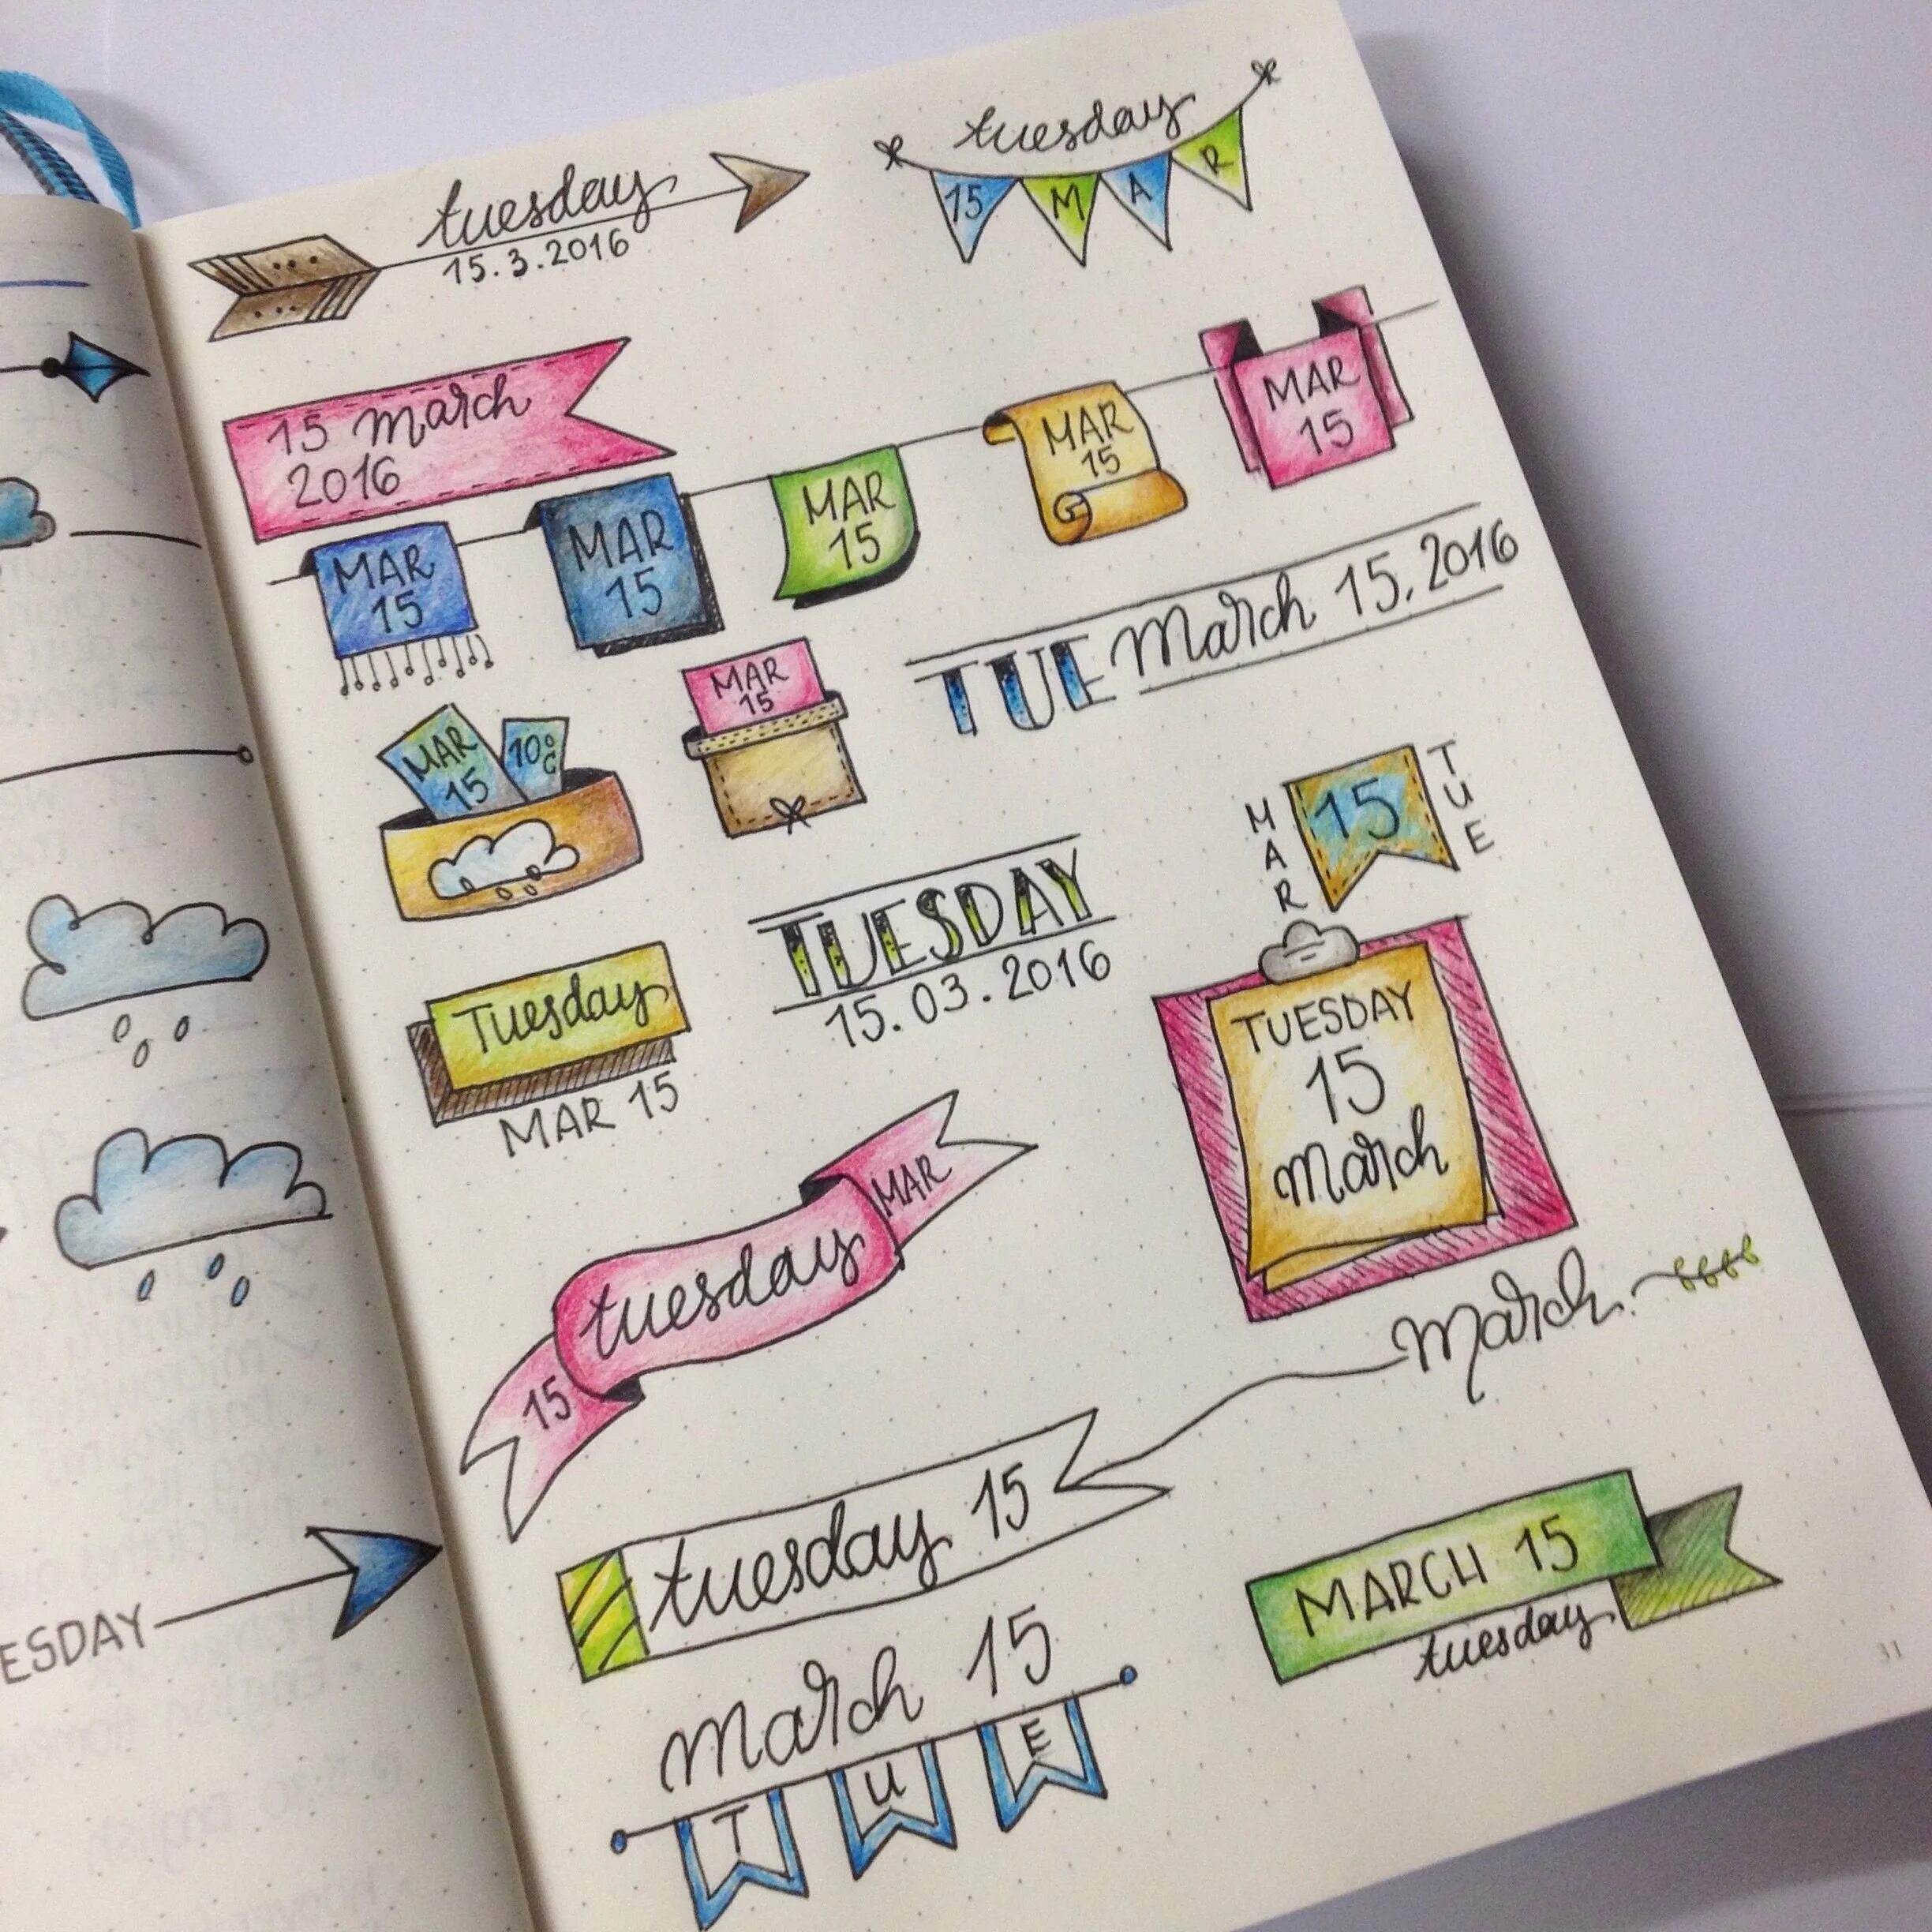 tuesday
15.3.2016
tuesday
15 M A R
15 March
2016
MAR
15
MAR
15
MAR
15
MAR
15
MAR
15
TUE March 15, 2016
MAR
15
10°C
MAR
15
MAR
15
TUE
TUESDAY
15.03.2016
Tuesday
MAR 15
TUESDAY
15
March
tuesday
MAR
15
March
tuesday 15
March 15
T U E
MARCH 15
tuesday
31
ESDAY